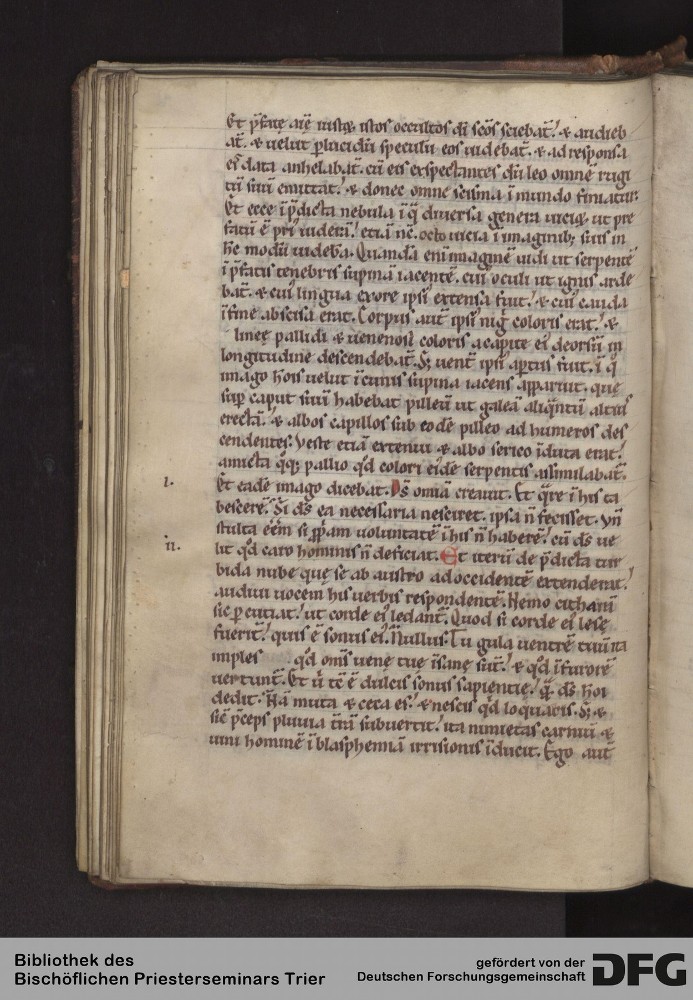 Et p̄fatę aīę iustoꝝ istos occultos dī sc̄os sciebat̄. ⁊ audieb
at̄. ⁊ uelut ꝑlucidū speculū eos uidebat̄. ⁊ ad responsa
eiꝰ data anhelabat̄. cū eis exspectantes dū leo omnē rugi
tū suū emittat. ⁊ donec omne scisma ī mundo finiatur.
Et ecce ī p̄dicta nebula ī q̄ diuersa genera uicioꝝ ut pre
fatū ē priꝰ uiderā. etiā nc̄ octo uicia ī imaginibꝫ suis in
hc̄ modū uidebā. Quandā enī imaginē uidi ut serpentē
ī p̄fatis tenebris supinā iacentē. cuiꝰ oculi ut ignis arde
bāt. ⁊ cuiꝰ lingua ex ore ipsiꝰ extensa fuit. ⁊ cuiꝰ cauda
ī fine abscisa erat. Corpus aut̄ ipsiꝰ nigri coloris erat. ⁊
lineę pallidi ⁊ uenenosi coloris a capite eiꝰ deorsū in
longitudine descendebāt. Sꝫ uent̄ ipsiꝰ aptus fuit. ī q̄
imago hōis uelut ī cunis supina iacens apparuit. quę
suꝑ caput suū habebat pilleū ut galeā aliqntū altiꝰ
erectā. ⁊ albos capillos sub eodē pilleo ad humeros des
cendentes. Veste etiā ex tenui ⁊ albo serico īduta erat.
amicta qq̨ pallio qd colori eidē serpentis assimilabat̄.
Et eadē imago dicebat. Ds̄ omīa creauit. Et qre ī his ta
I.
bescerē. Si ds̄ ea necessaria nesciret. ipsa n̄ fecisset. Vn̄
stulta eēm si ꝓpam uoluntatē ī his n̄ haberē. cū ds̄ ue
II.
lit qd caro hominis n̄ deficiat. Et iterū de p̄dicta tur
bida nube quę se ab austro ad occidentē extenderat.
audiui uocem his uerbis respondentē. Nemo citharā
sic ꝑcutiat. ut corde eiꝰ ledant̄. Quod si corde eiꝰ lesę
fuerīt. quis ē sonus eiꝰ. Nullus. Tu gula uentrē tuū ita
imples qd om̄s uene tue īsane sūt. ⁊ qd ī furorē
uertunt̄. Et ū tc̄ ē dulcis sonus sapientie. quā ds̄ hoī
dedit. Nā muta ⁊ ceca es. ⁊ nescis qd loquaris. Sꝫ ⁊
sic p̄ceps pluuia trā̄ subuertit. ita nimietas carniū ⁊
uini hominē ī blasphemiā irrisionis īducit. Ego aut̄
Bibliothek des
Bischöflichen Priesterseminars Trier
gefördert von der
Deutschen Forschungsgemeinschaft
DFG